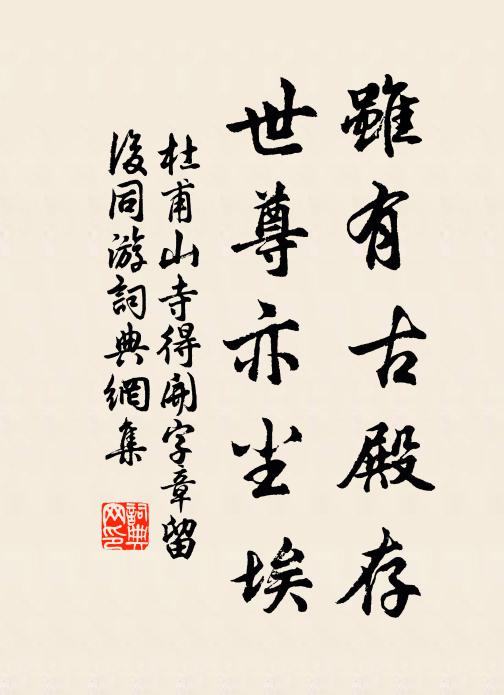 雖有古殿存
世尊亦尘埃
杜甫山寺得開字章留
後同游詞典網集
詞典
网印